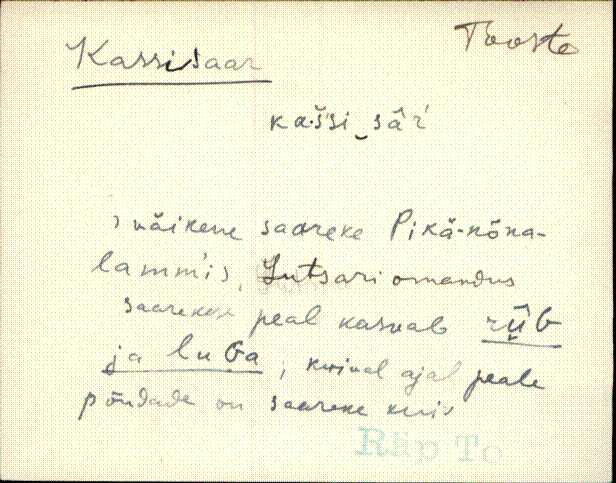 Tooste
Kassisaar
ka·š́śi‿sâŕ
väikene saareke Pikä-nõna-
lammis, Jutsari omandus
saarekese peal kasvab rü̂G
ja luGa; kuival ajal peale
põudade on saareke kuiv
Räp To